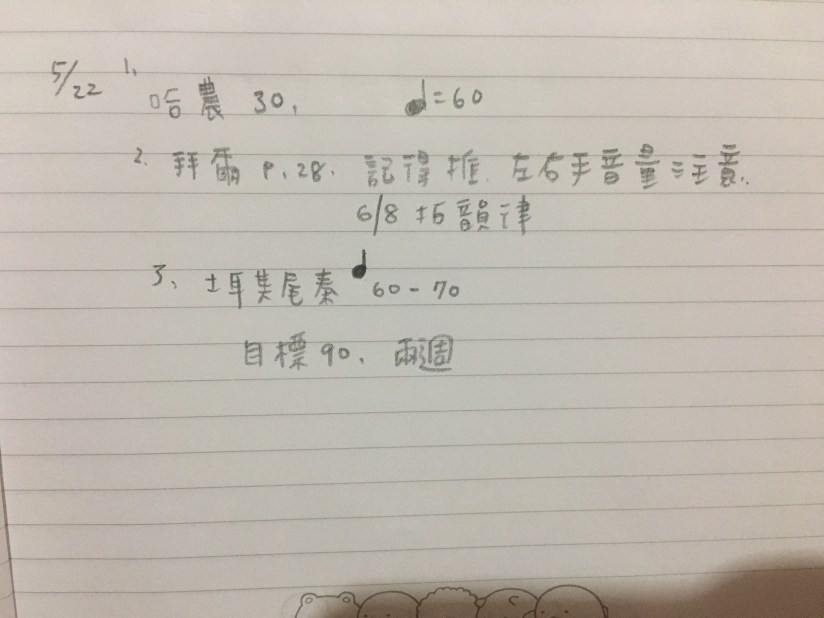 5/22 1. 哈農 30, ♩=60
2. 拜爾 P.28. 記得推. 左右手音量注意.
6/8 拍韻律
3、土耳其尾奏 ♩ 60-70
目標 90. 兩週